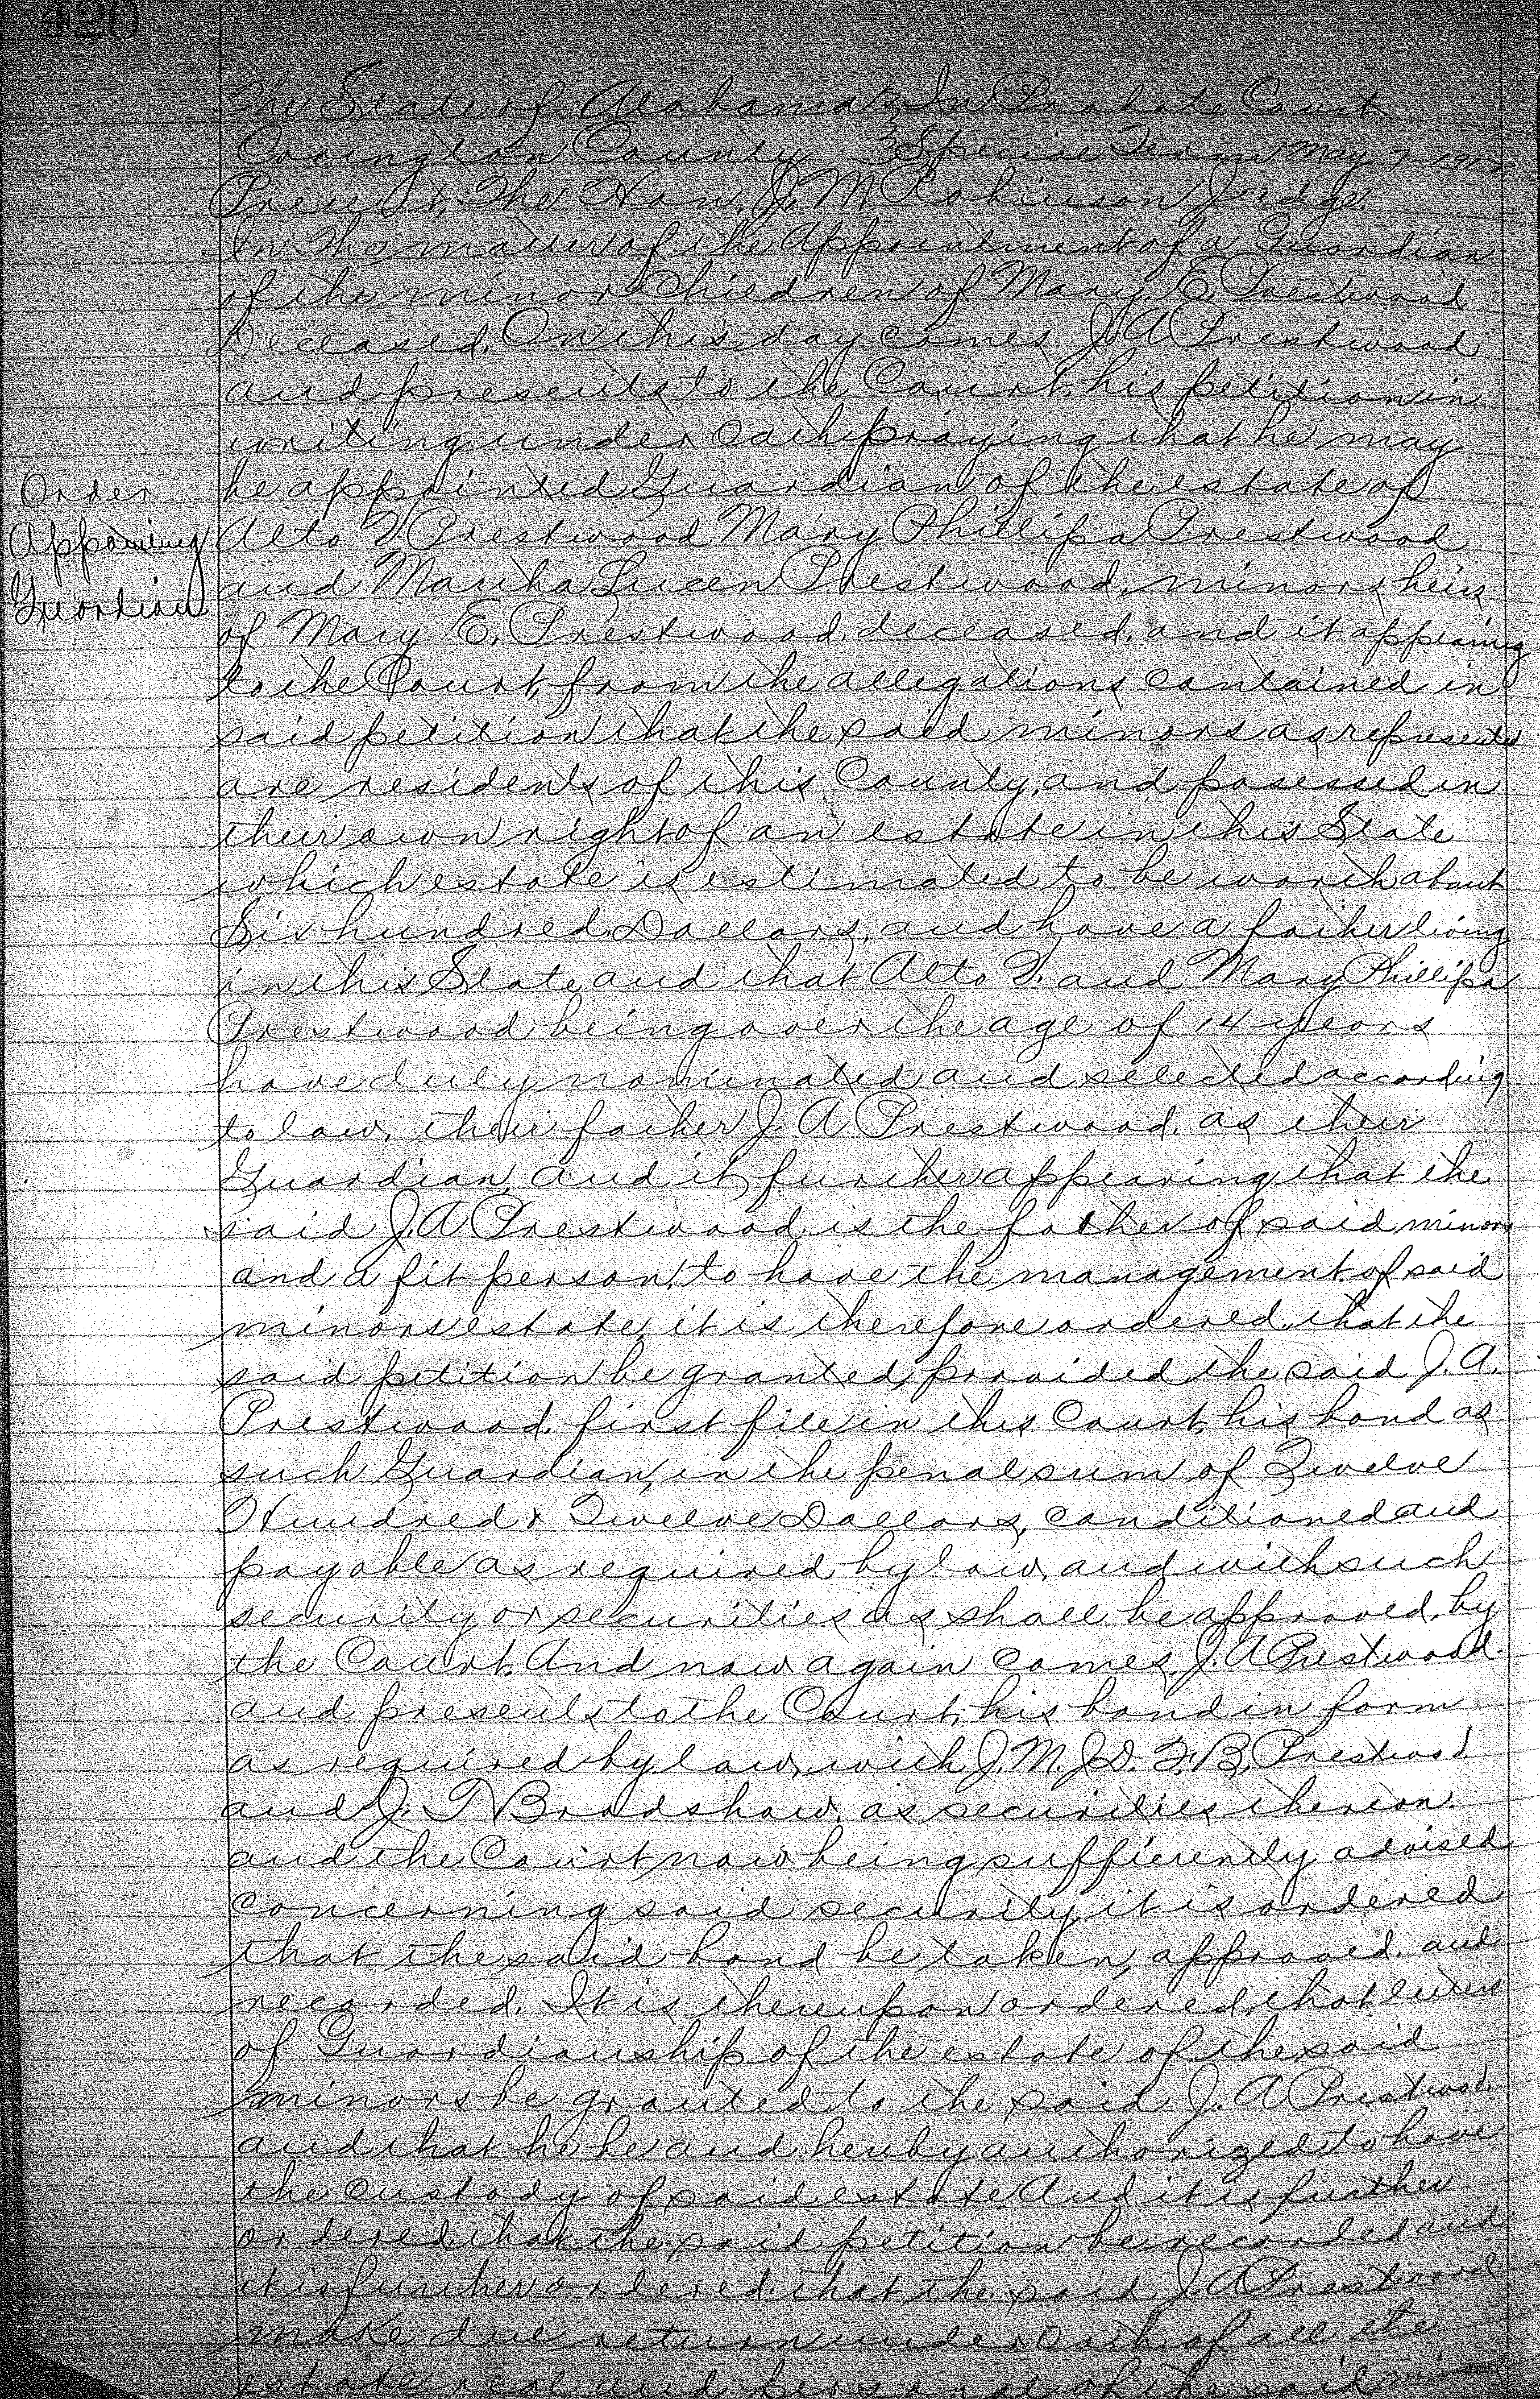 420
The State of Alabama } In Probate Court
Covington County } Special Term May 7-1912
Present, The Hon. J. M Robinson Judge.
In the matter of the Appointment of a Guardian
of the minor Children of Mary E. Prestwood
Deceased. On this day comes J. A Prestwood
and presents to the Court, his petition in
writing under Oath praying that he may
be appointed Guardian of the estate of
Order
Appointing
Guardian
Alto V Prestwood Mary Phillipa Prestwood
and Martha Lucen Prestwood, minors heirs
of Mary E. Prestwood, deceased. and it appearing
to the Court, from the allegations contained in
said petition that the said minors as represented
are residents of this County, and posessed in
their own right of an estate in this State
which estate is estimated to be worth about
Six hundred Dollars, and have a father living
in this State, and that Alto V. and Mary Phillipa
Prestwood being over the age of 14 years
have duly nominated and selected according
to law, their father J. A Prestwood, as their
Guardian, and it further appearing that the
said J. A Prestwood is the father of said minors
and a fit person, to have the management of said
minors estate, it is therefore ordered that the
said petition be granted, provided the said J. A.
Prestwood, first file in this Court, his bond as
such Guardian, in the penal sum of Twelve
Hundred & Twelve Dollars, conditioned and
payable as required by law, and with such
security or securities as shall be approved, by
the Court. And now again comes J. A Prestwood
and presents to the Court, his bond in form
as required by law, with J. M. J. D. F. B. Prestwood
and J. T Bradshaw, as securities thereon.
and the Court now being sufficiently advised
concerning said security, it is ordered
that the said bond be taken, approved. and
recorded. It is thereupon ordered, that letters
of Guardianship of the estate of the said
minors be granted to the said J. A Prestwood,
and that he be and hereby authorized to have
the custody of said estate. And it is further
ordered, that the said petition be recorded and
it is further ordered. that the said J. A Prestwood
make due return under oath of all the
estate real and personal of the said minors